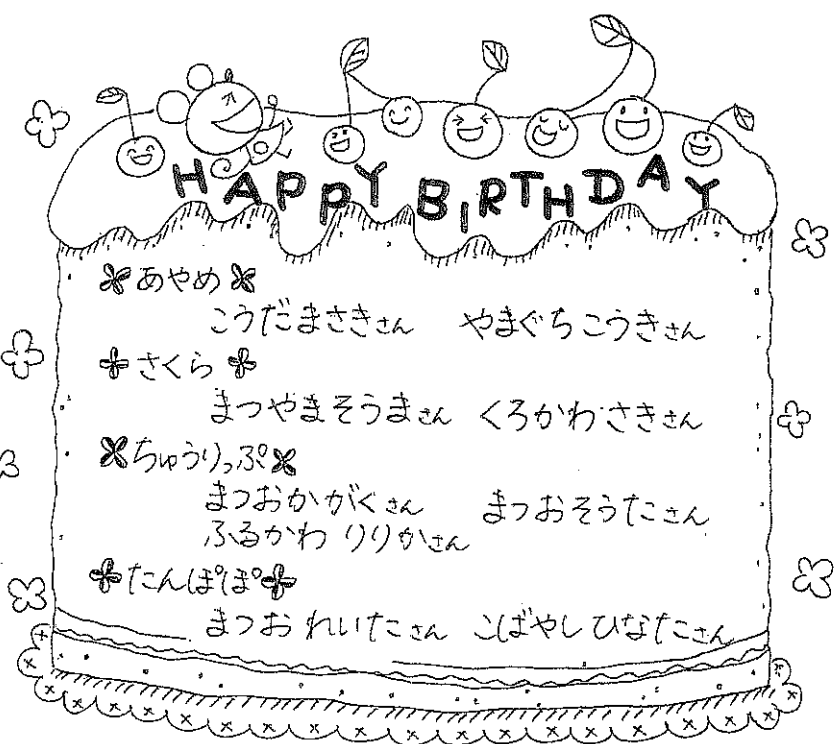 HAPPY BIRTHDAY
あやめ
こうだまさきさん やまぐちこうきさん
さくら
まつやまそうまさん くろかわさきさん
ちゅうりっぷ
まつおかがくさん まつおそうたさん
ふるかわ りりかさん
たんぽぽ
まつお れいたさん こばやし ひなたさん